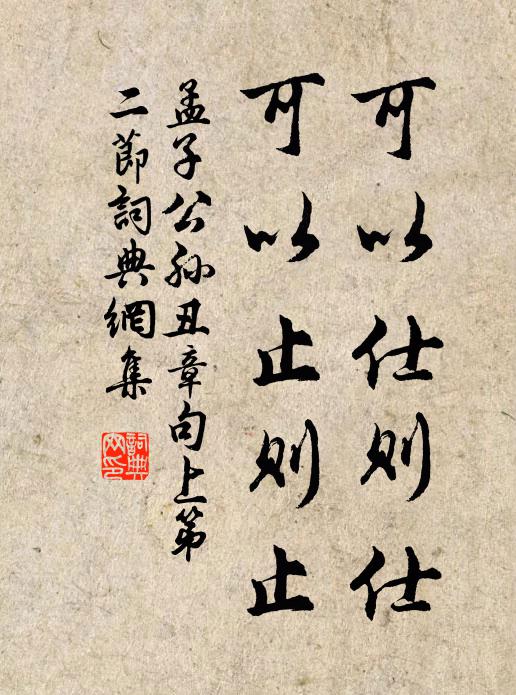 可以仕则仕
可以止则止
孟子公孫丑章句上第
二節詞典網集
詞典
网印